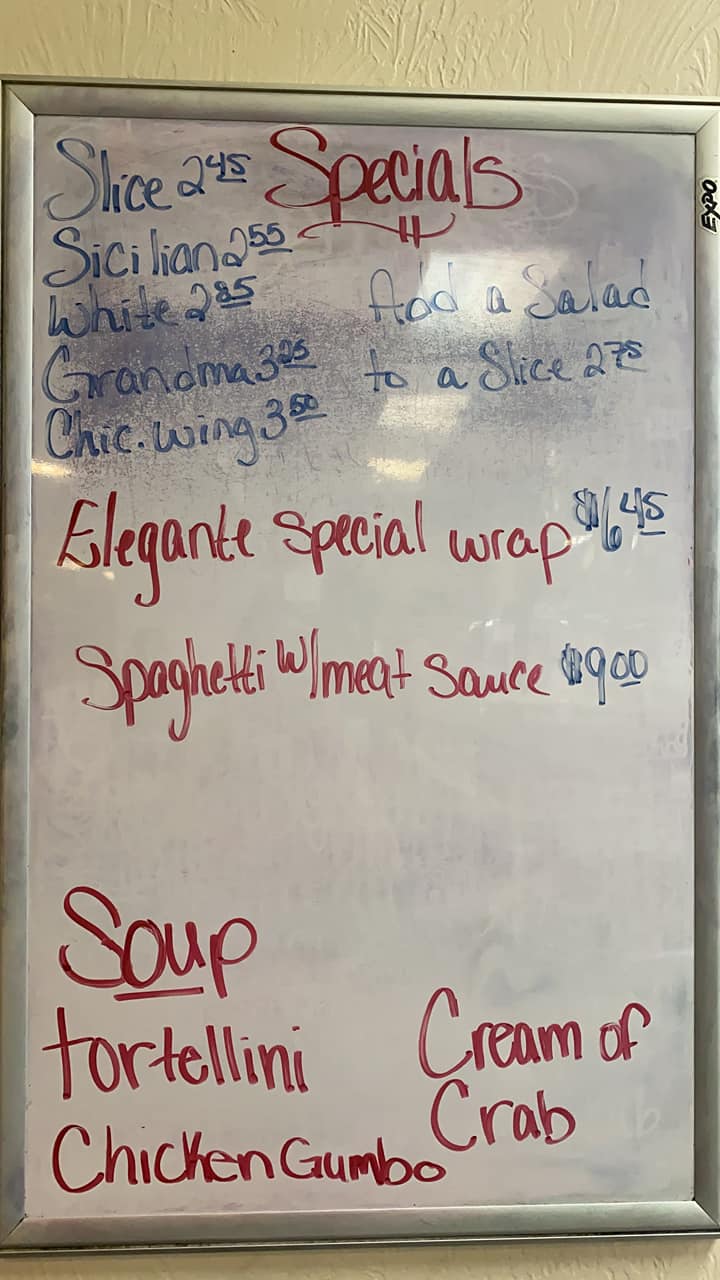 Specials
Slice 2.45
Sicilian 2.55
White 2.85
Grandma 3.25
Chic. wing 3.50
Add a Salad
to a Slice 2.75
Elegante special wrap $6.45
Spaghetti w/meat sauce $9.00
Soup
tortellini
Cream of
Crab
Chicken Gumbo
EXPO